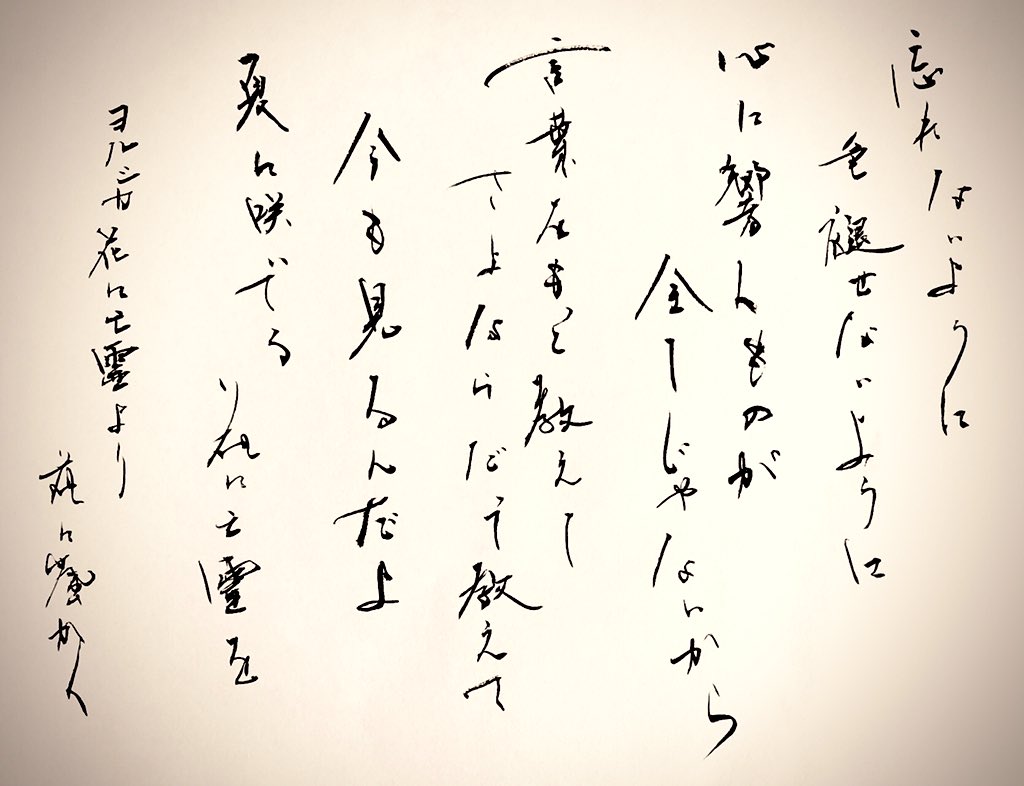 忘れないように
色褪せないように
心に響くものが
全てじゃないから
言葉をもって教えて
さよならだって教えて
今も見るんだよ
夏に咲いてる
花に亡霊を
ヨルシカ 花に亡霊より